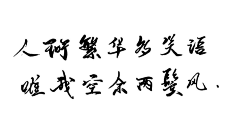 人繁华多笑语
唯我空余两鬓风.